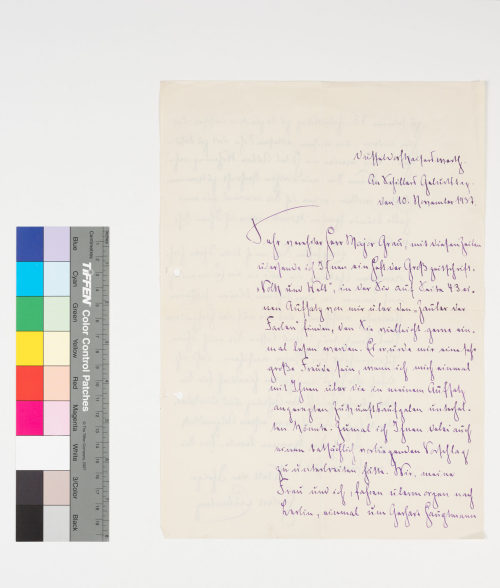 Düsseldorf-Kaiserswerth.
An Schillers Geburtstag.
den 10. November 1937.
Sehr verehrter Herr Major Grau, mit diesen Zeilen
übersende ich Ihnen ein Heft der Großzeitschrift.
„Volk und Welt“, in der Sie auf Seite 43 ei-
nen Aufsatz von mir über den „Zauber der
Farben“ finden, den Sie vielleicht gerne ein-
mal lesen werden. Es würde mir eine sehr
große Freude sein, wenn ich mich einmal
mit Ihnen über die in meinem Aufsatz
angeregten Zukunftsaufgaben unterhal-
ten könnte. Zumal ich Ihnen dabei auch
einen tatsächlich vorliegenden Vorschlag
zu unterbreiten hätte. Wir, meine
Frau und ich, fahren übermorgen nach
Berlin, einmal um Gerhart Hauptmann
Centimetres
TIFFEN Color Control Patches
Blue
Cyan
Green
Yellow
Red
Magenta
White
3/Color
Black